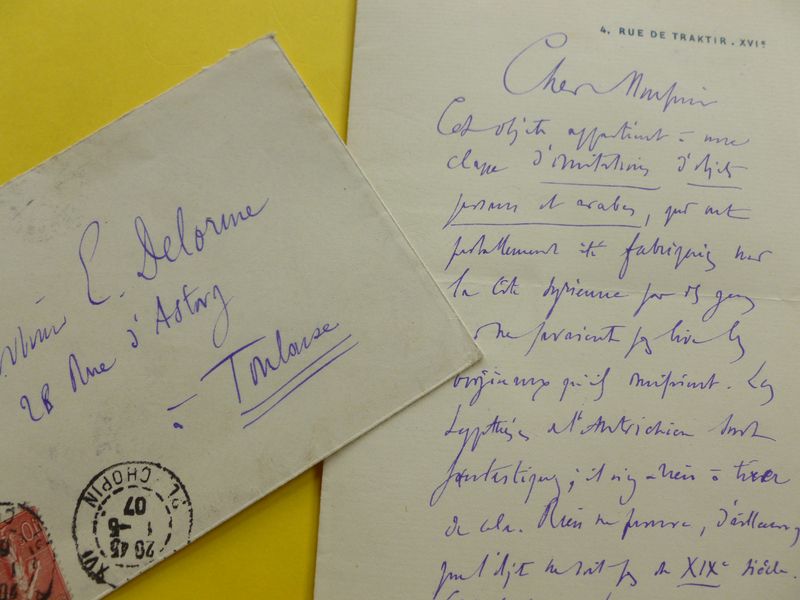 4, RUE DE TRAKTIR. XVIe
Cher Monsieur
Ces objets appartiennent à une
classe d'imitations d'objets
persans et arabes, qui ont
été fabriqués sur
la côte syrienne par des gens
qui ne savaient pas lire les
originaux qu'ils copiaient. Les
hypothèses de l'Autrichien sont
fantastiques ; il n'y a rien à tirer
de cela. Rien ne prouve, d'ailleurs,
que l'objet ne soit pas du XIXe siècle.
Monsieur E. Delorme
28 Rue d'Astorg
à Toulouse
PL. CHOPIN
XVI
20 45
1 -5
07